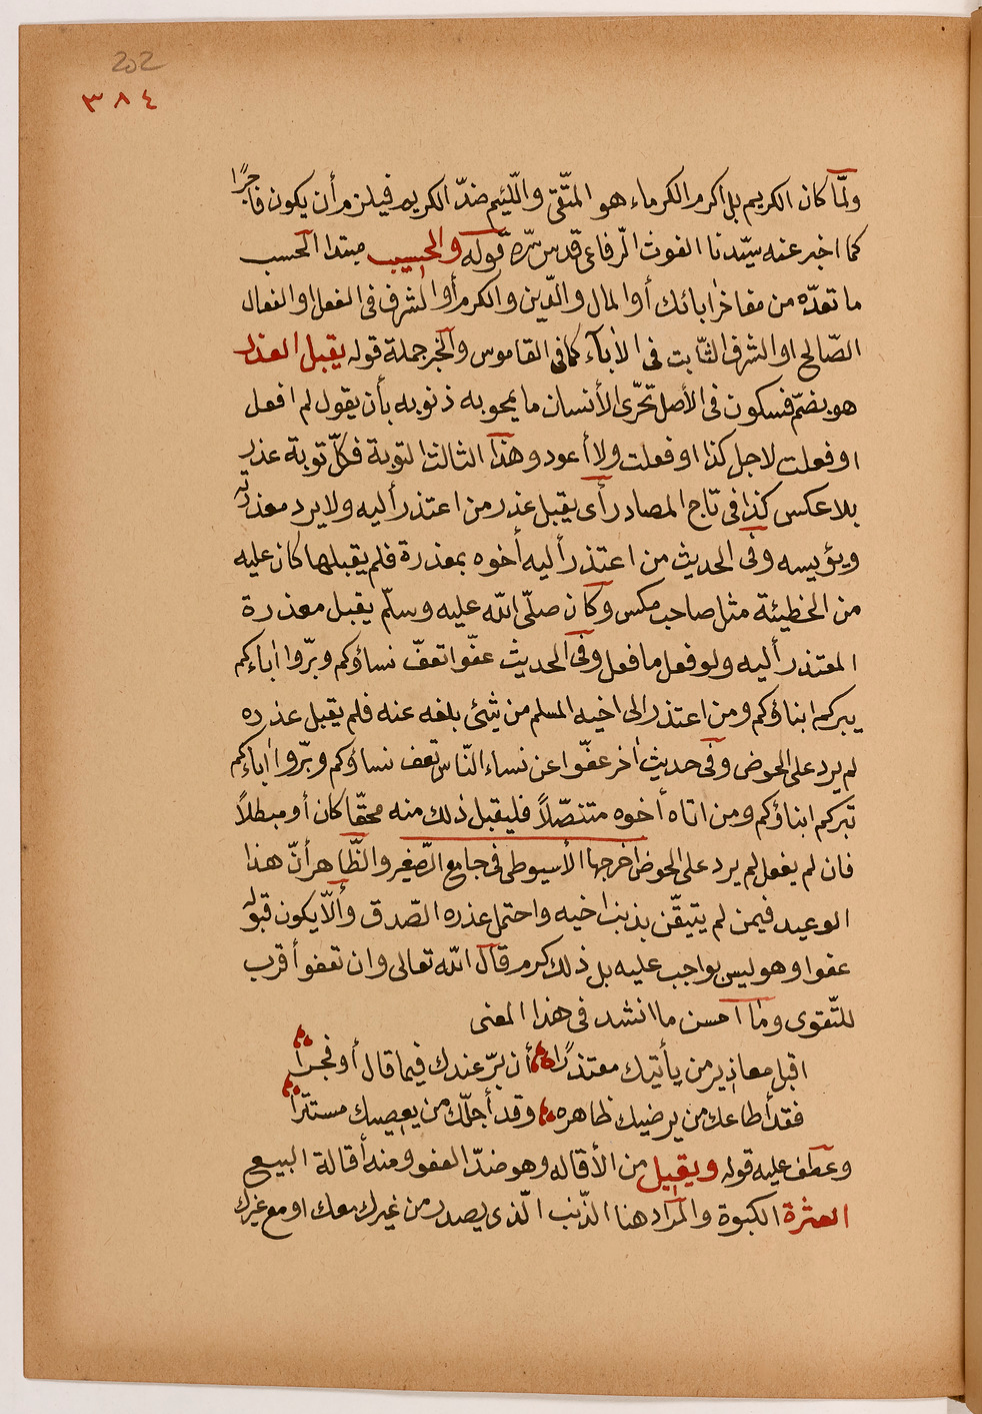 202
٣٨٤
ولمّا كان الكريم بل اكرم الكرماء هو المتّقى واللّئيم ضدّ الكريم فيلزم أن يكون فاجرًا
كما اخبر عنه سيّدنا الغوث الرّفاعى قدس سّره قوله والحسيب مبتدا الحسب
ما تعدّه من مفاخر ابائك أو المال والدّين والكرم أو الشرف فى الفعل او الفعال
الصّالح او الشرف الثّابت فى الأبآء كما فى القاموس والخبر جملة قوله يقبل العذر
هو بضمّ فسكون فى الأصل تحرّى الأنسان ما يمحو به ذنوبه بأن يقول لم افعل
او فعلت لاجل كذا او فعلت ولا أعود وهذا الثالث التوبة فكلّ توبة عذر
بلا عكس كذا فى تاج المصادر أى يقبل عذر من اعتذر أليه ولا يرد معذرته
ويؤيسه وفى الحديث من اعتذر أليه أخوه بمعذرة فلم يقبلها كان عليه
من الخطيئة مثل صاحب مكس وكان صلّى الله عليه وسلّم يقبل معذرة
المعتذر أليه ولو فعل ما فعل وفى الحديث عفّوا تعفّ نساؤكم وبرّوا اٰباءكم
يبركم ابناؤكم ومن اعتذر الى اخيه المسلم من شئ بلغه عنه فلم يقبل عذره
لم يرد على الحوض وفى حديث اٰخر عفّوا عن نساء النّاس تعف نساؤكم وبرّوا اٰباءكم
تبركم ابناؤكم ومن اتاه أخوه متنصّلاً فليقبل ذلك منه محقّا كان أو مبطلاً
فان لم يفعل لم يرد على الحوض اخرجها الأسيوطى فى جامع الصّغير والظّاهر أنّ هذا
الوعيد فيمن لم يتيقّن بذنب اخيه واحتمل عذره الصّدق وألاّ يكون قبوله
عفوا وهو ليس بواجب عليه بل ذلك كرم قال الله تعالى وان تعفو أقرب
للتّقوى وما احسن ما انشد فى هذا المعنى
اقبل معاذير من يأتيك معتذرًا أن برّ عندك فيما قال أو فجرا
فقد أطاعك من يرضيك ظاهره وقد أجلّك من يعصيك مستترا
وعطف عليه قوله ويقيل من الأقاله وهو ضدّ العفو ومنه أقالة البيع
العثرة الكبوة والمراد هنا الذّنب الّذى يصدر من غيرك معك او مع غيرك